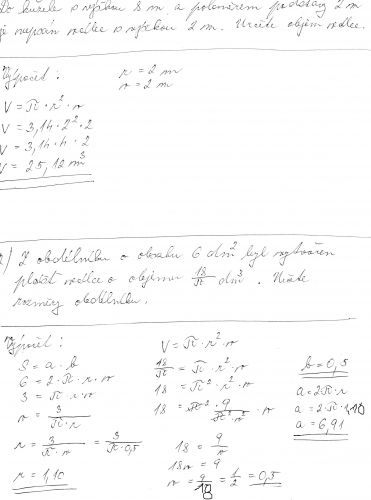 Do kužele s výškou 8 m a poloměrem podstavy 2 m
je vepsán válec s výškou 2 m. Určete objem válce.
Výpočet:
r = 2 m
v = 2 m
V = π · r² · v
V = 3,14 · 2² · 2
V = 3,14 · 4 · 2
V = 25,12 m³
2) Z obdélníku o obsahu 6 dm² byl vytvořen
plášť válce o objemu 18/π dm³. Určete
rozměry obdélníku.
Výpočet:
S = a · b
6 = 2 · π · r · v
3 = π · r · v
v = 3/π · r
r = 3/π · v = 3/π · 0,5
r = 1,10
V = π · r² · v
18/π = π · r² · v
18 = π² · r² · v
18 = π² · 9/π² · v² · v
18 = 9/v
18v = 9
v = 9/18 = 1/2 = 0,5
b = 0,5
a = 2π · r
a = 2 · π · 1,10
a = 6,91